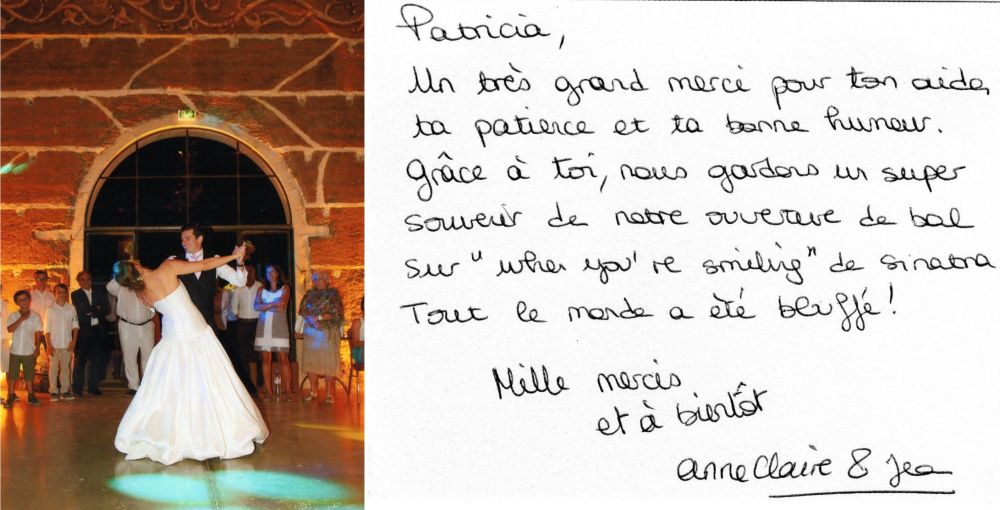 Patricia,
Un très grand merci pour ton aide,
ta patience et ta bonne humeur.
Grâce à toi, nous gardons un super
souvenir de notre ouverture de bal
sur "when you're smiling" de Sinatra
Tout le monde a été bluffé !
Mille mercis
et à bientôt
Anne Claire &